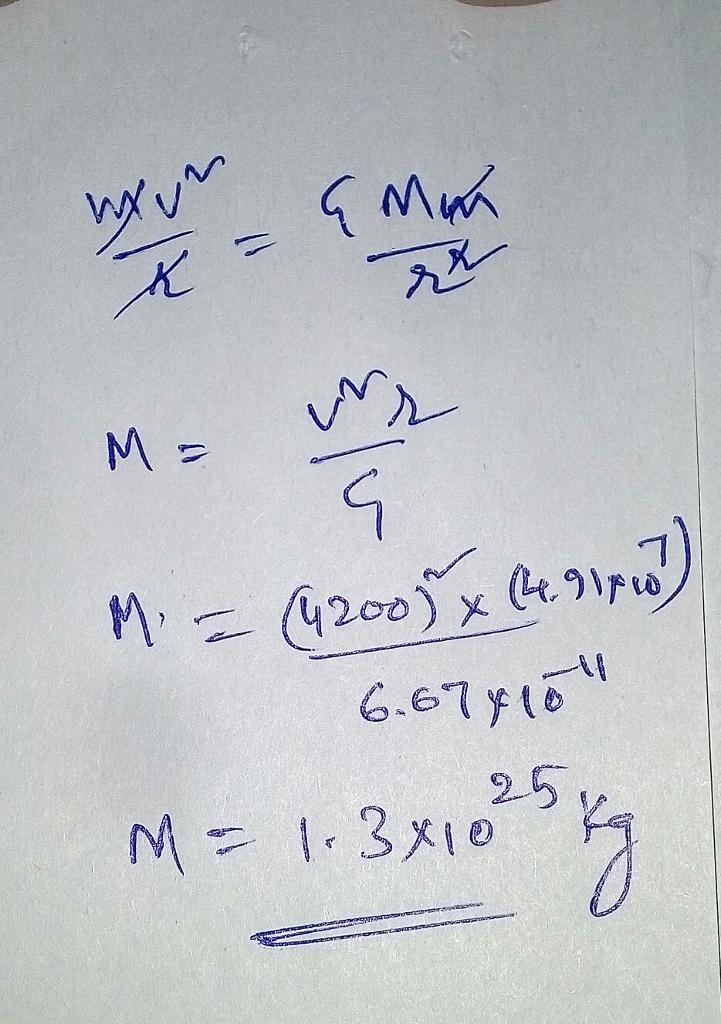 mv² / r = GMm / r²
M = v²r / G
M. = (4200)² x (4.91x10⁷) / 6.67x10⁻¹¹
M = 1.3x10²⁵ kg